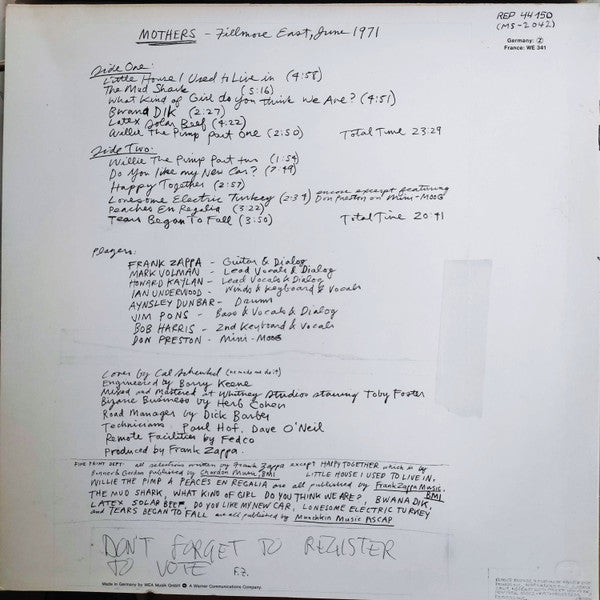 MOTHERS - Fillmore East, June 1971
REP 44 150
(MS-2042)
Germany: Z
France: WE 341
Side One:
Little House I Used to Live in (4:58)
The Mud Shark (5:16)
What Kind of Girl do you Think We Are? (4:51)
Bwana Dik (2:27)
Latex Solar Beef (4:22)
Willie The Pimp part one (2:50) Total Time 23:29
Side Two:
Willie The Pimp Part two (1:54)
Do You like my New Car? (7:49)
Happy Together (2:57)
Lonesome Electric Turkey (2:34) encore excerpt featuring Don Preston on Mini-Moog
Peaches En Regalia (3:22)
Tears Began To Fall (3:50) Total Time 20:41
Players:
FRANK ZAPPA - Guitar & Dialog
MARK VOLMAN - Lead Vocals & Dialog
HOWARD KAYLAN - Lead Vocals & Dialog
IAN UNDERWOOD - Winds & Keyboard & Vocals
AYNSLEY DUNBAR - Drums
JIM PONS - Bass & Vocals & Dialog
BOB HARRIS - 2nd Keyboard & Vocals
DON PRESTON - Mini-Moog
Cover by Cal Schenkel (he made me do it)
Engineered by Barry Keene
Mixed and Mastered at Whitney Studios starring Toby Foster
Bizarre Business by Herb Cohen
Road Manager by Dick Barber
Technicians: Paul Hof, Dave O'Neil
Remote Facilities by Fedco
Produced by Frank Zappa.
FINE PRINT DEPT: all selections written by Frank Zappa except HAPPY TOGETHER which is by
Bonner & Gordon published by Chardon Music, BMI LITTLE HOUSE I USED TO LIVE IN,
WILLIE THE PIMP & PEACES EN REGALIA are all published by Frank Zappa Music, BMI
THE MUD SHARK, WHAT KIND OF GIRL DO YOU THINK WE ARE?, BWANA DIK,
LATEX SOLAR BEEF, DO YOU LIKE MY NEW CAR, LONESOME ELECTRIC TURKEY
and TEARS BEGAN TO FALL are all published by Munchkin Music ASCAP
DON'T FORGET TO REGISTER
TO VOTE F.Z.
Made in Germany by WEA Musik GmbH A Warner Communications Company.